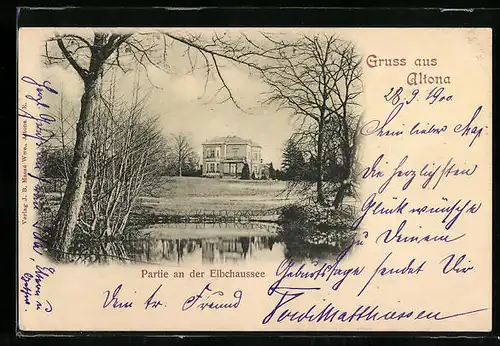 Gruss aus
Altona
28.9.1900.
Mein lieber
Die herzlichsten
Glückwünsche
zu Deinem
Geburtstag sendet Dir
Dein tr. Freund
Matthiessen
Partie an der Elbchaussee
Verlag J. B. Massé Wwe., Altona a/E.